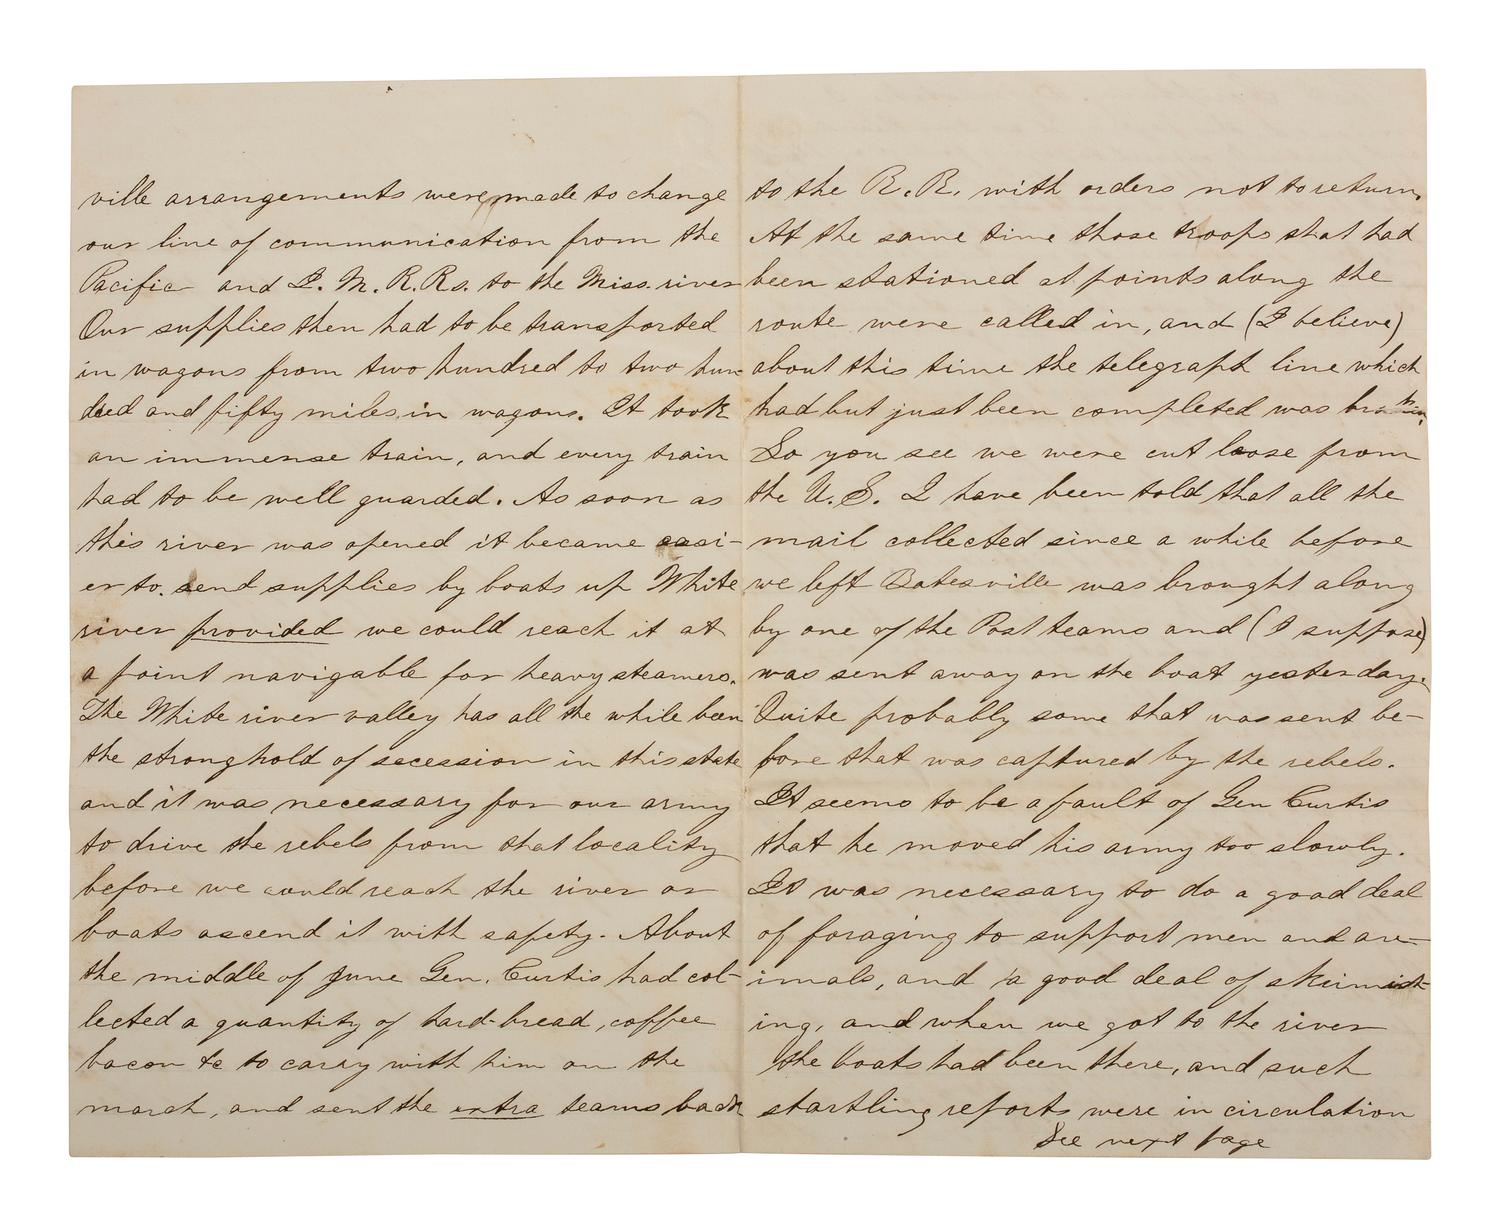 ville arrangements were made to change
our line of communication from the
Pacific and I. M. R. Rs. to the Miss. river
Our supplies then had to be transported
in wagons from two hundred to two hun-
dred and fifty miles in wagons. It took
an immense train, and every train
had to be well guarded. As soon as
this river was opened it became easi-
er to send supplies by boats up White
river provided we could reach it at
a point navigable for heavy steamers.
The White river valley has all the while been
the stronghold of secession in this state
and it was necessary for our army
to drive the rebels from that locality
before we could reach the river or
boats ascend it with safety. About
the middle of June Gen. Curtis had col-
lected a quantity of hard-bread, coffee
bacon &c to carry with him on the
march, and sent the extra teams back
to the R. R. with orders not to return.
At the same time those troops that had
been stationed at points along the
route were called in, and (I believe)
about this time the telegraph line which
had but just been completed was broken.
So you see we were cut loose from
the U. S. I have been told that all the
mail collected since a while before
we left Batesville was brought along
by one of the Post teams and (I suppose)
was sent away on the boat yesterday.
Quite probably some that was sent be-
fore that was captured by the rebels.
It seems to be a fault of Gen Curtis
that he moved his army too slowly.
It was necessary to do a good deal
of foraging to support men and an-
imals, and a good deal of skirmish-
ing, and when we got to the river
the boats had been there, and such
startling reports were in circulation
See next page